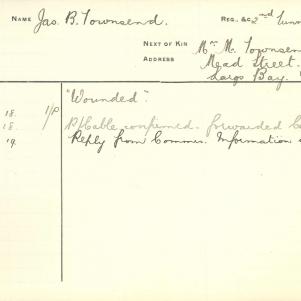 NAME Jas. B. Townsend. REG. &C 2nd Tunn
NEXT OF KIN Mrs. M. Townsen
ADDRESS Mead Street.
Largs Bay.
"Wounded".
18. 1/P
18. P/Cable confirmed. forwarded
19. Reply from Commrs. Information